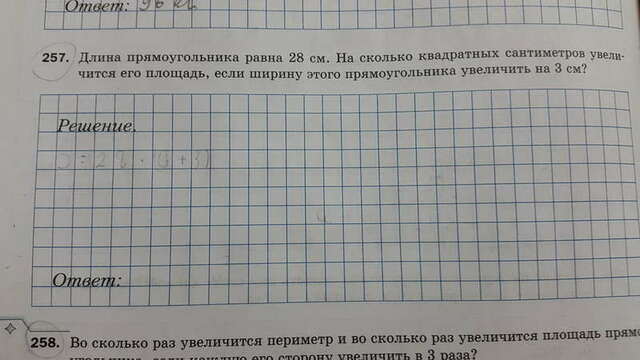 Ответ: 96 см
257. Длина прямоугольника равна 28 см. На сколько квадратных сантиметров увели-
чится его площадь, если ширину этого прямоугольника увеличить на 3 см?
Решение.
Ответ:
258. Во сколько раз увеличится периметр и во сколько раз увеличится площадь прямо
если каждую его сторону увеличить в 3 раза?